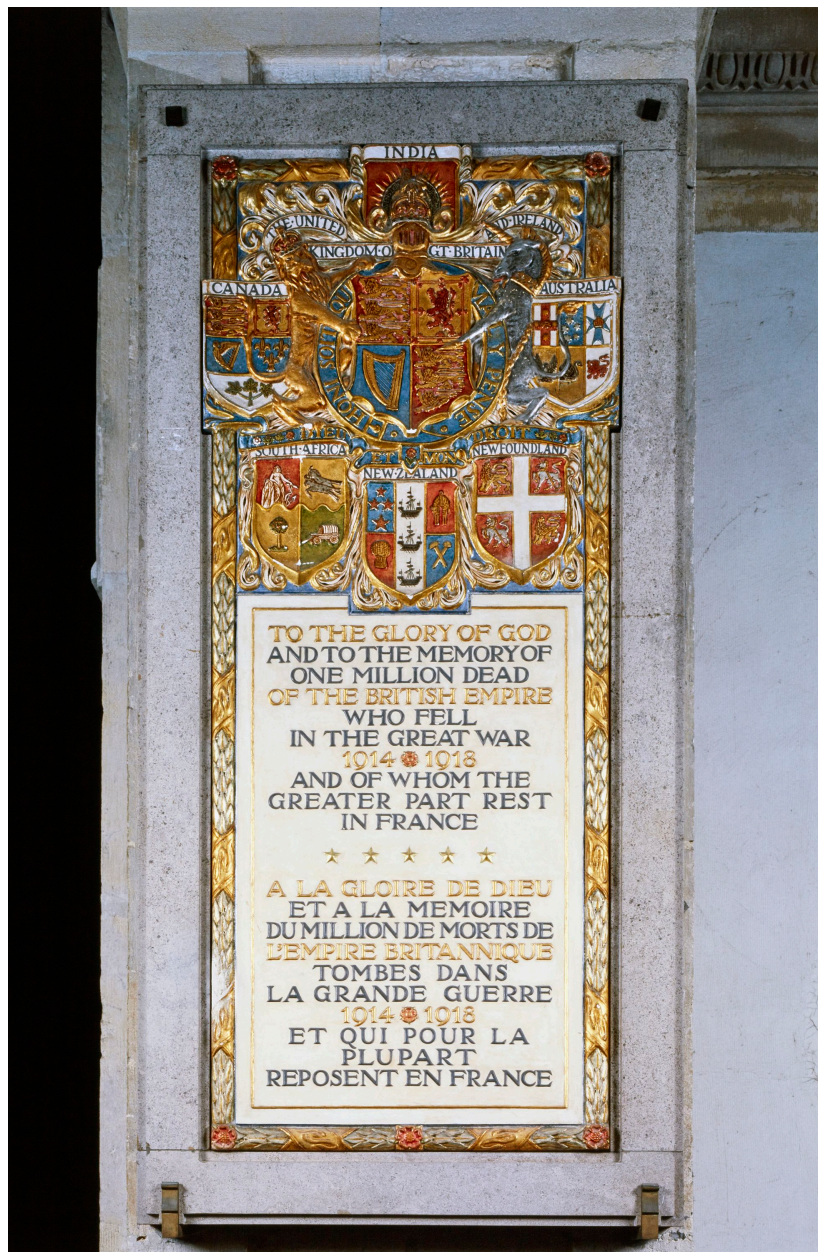 INDIA
THE·UNITED
ND·IRELAND
KINGDOM·O GT·BRITAIN
CANADA
AUSTRALIA
SOUTH·AFRICA
ET MON
NEWFOUNDLAND
NEW·ZEALAND
TO THE GLORY OF GOD
AND TO THE MEMORY OF
ONE MILLION DEAD
OF THE BRITISH EMPIRE
WHO FELL
IN THE GREAT WAR
1914 1918
AND OF WHOM THE
GREATER PART REST
IN FRANCE
A LA GLOIRE DE DIEU
ET A LA MEMOIRE
DU MILLION DE MORTS DE
L'EMPIRE BRITANNIQUE
TOMBES DANS
LA GRANDE GUERRE
1914 1918
ET QUI POUR LA
PLUPART
REPOSENT EN FRANCE